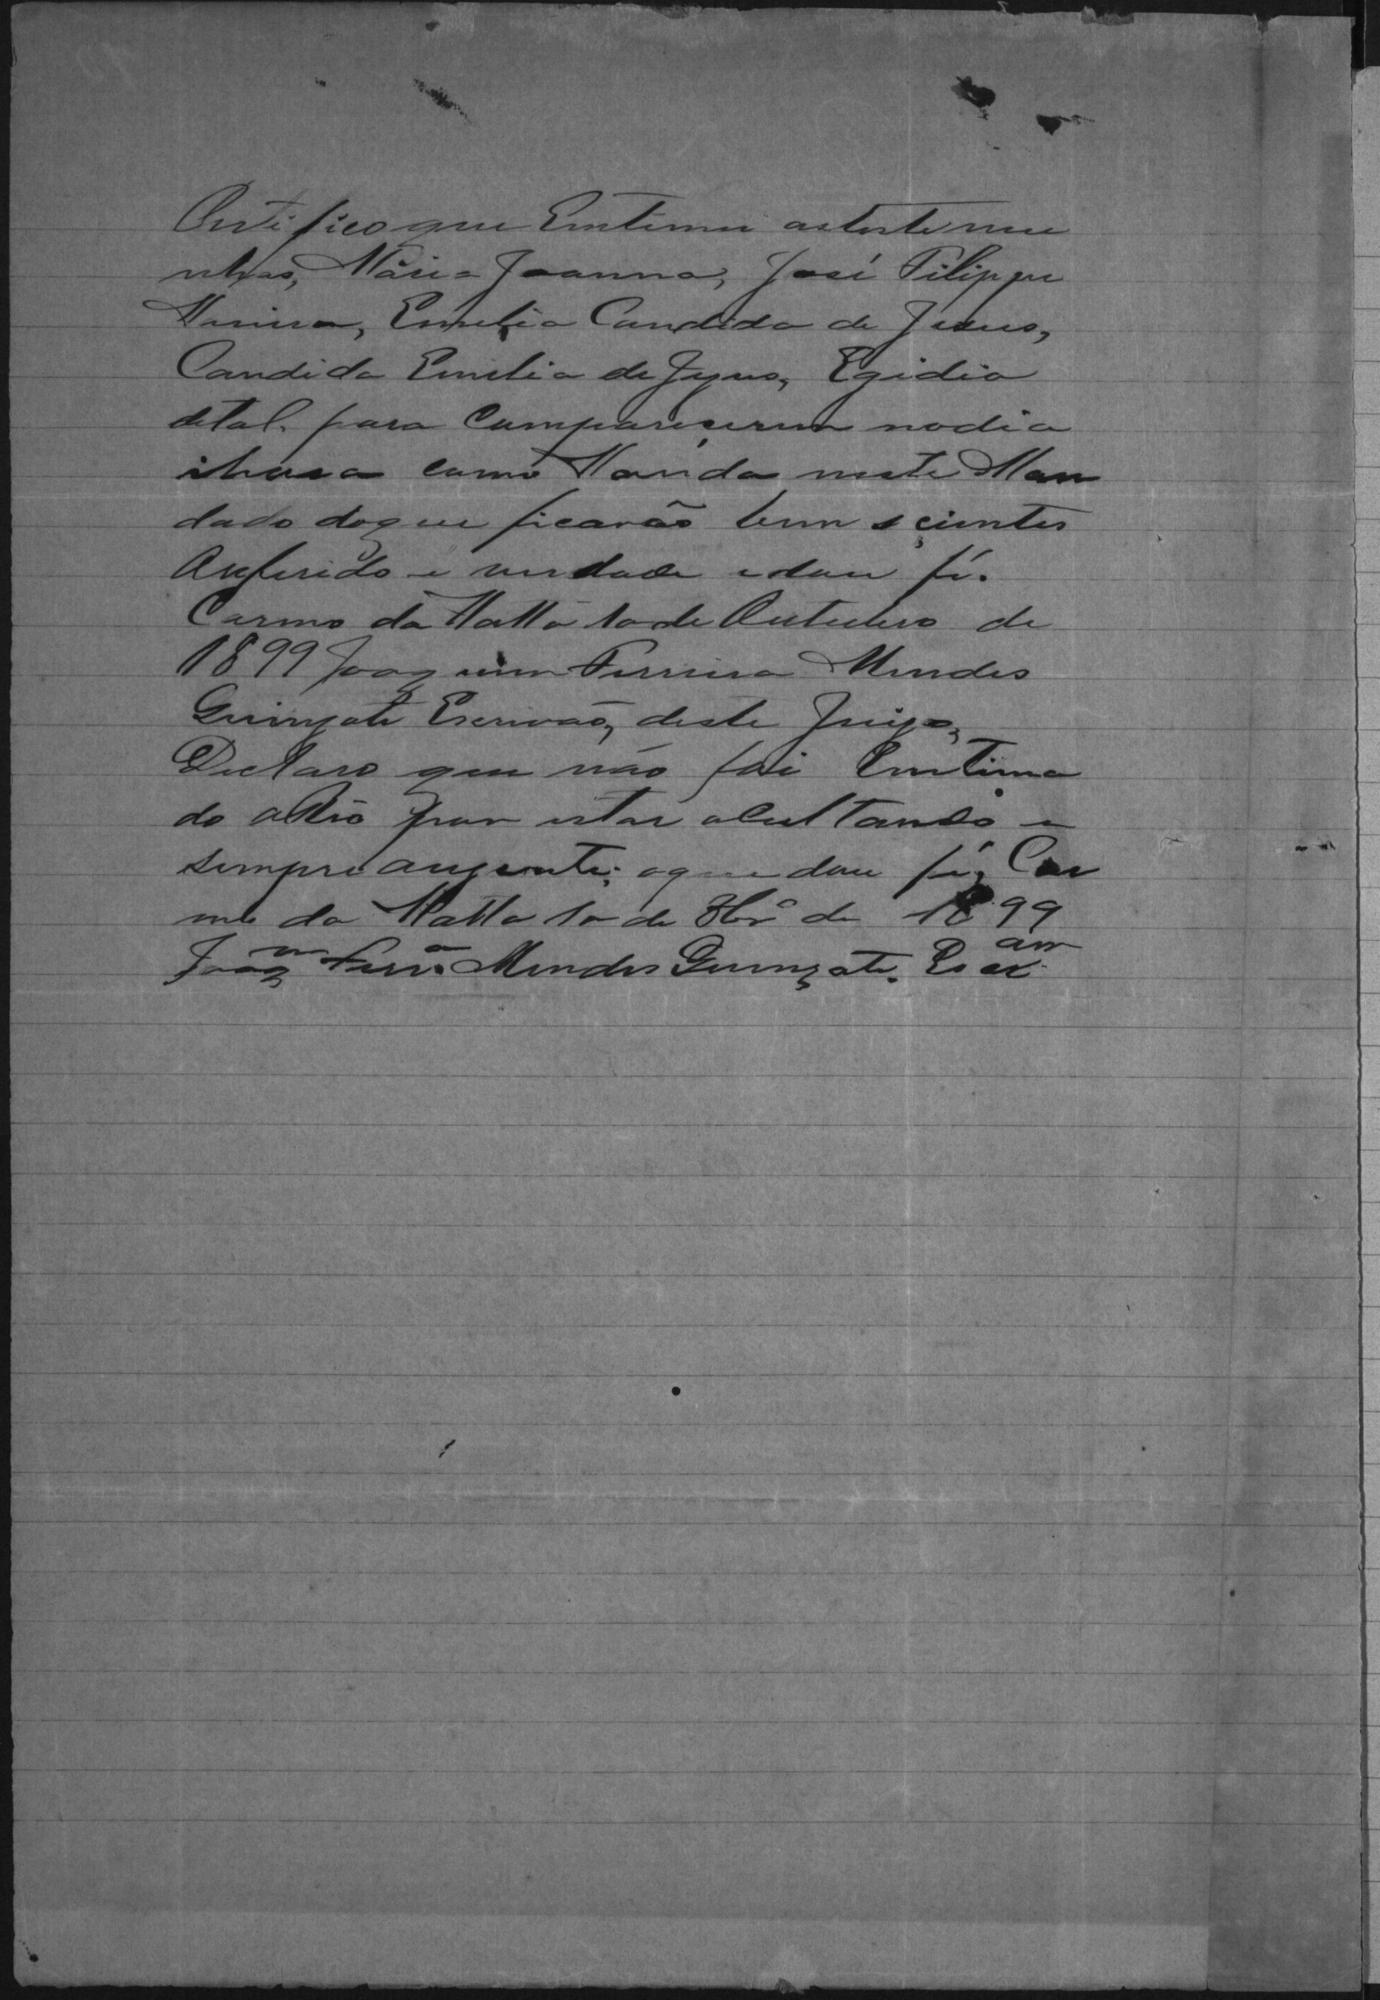 Certifico que Emtimei as teste mu
nhas, Mária Joanna, José Filippe
Pereira, Emelia Candida de Jesus,
Candida Emilia de Jezus, Egidio
de tal. para Compareserem no dia
ihora como Manda neste Man
dado do que ficarão bem scientes
Oreferido é verdade e dou fé.
Carmo da Matta 10 de Outubro de
1899 Joaquim Ferreira Mendes
Escrivão, deste Juizo,
Declaro que não foi Emtima
do o Réo por estar ocultando e
sempre auzente; o que dou fé, Car
mo da Matta 10 de 8brº de 1899
Joaqm Ferrª Mendes